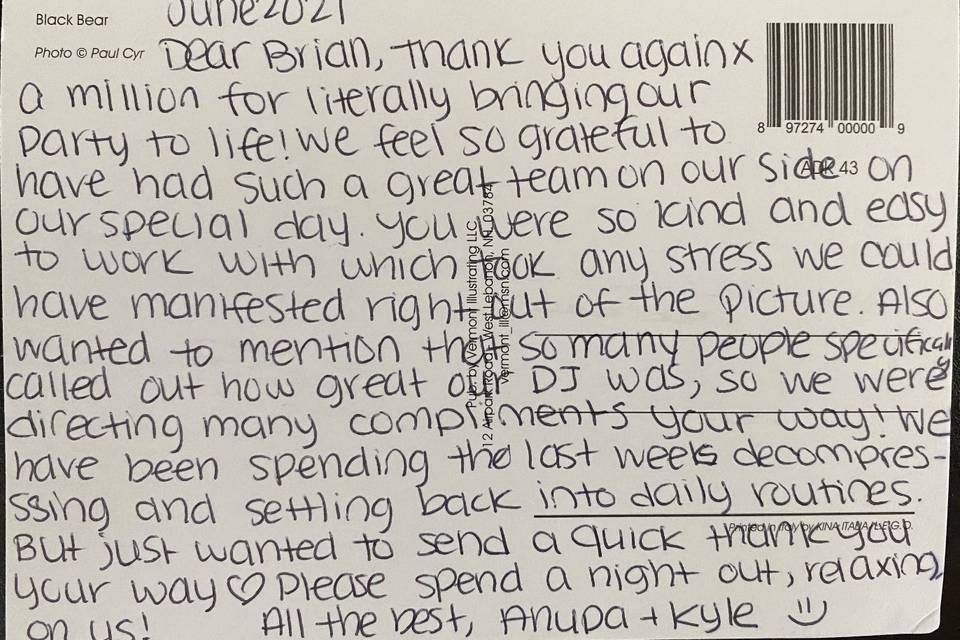 Black Bear
June 2021
Photo © Paul Cyr
Dear Brian, Thank you again x
a million for literally bringing our
party to life! We feel so grateful to
8 97274 00000 9
have had such a great team on our side on
ADK 43
our special day. You were so kind and easy
to work with which took any stress we could
have manifested right out of the picture. Also
wanted to mention that so many people specifically
called out how great our DJ was, so we were
directing many compliments your way! We
have been spending the last weeks decompres-
ssing and settling back into daily routines.
But just wanted to send a quick thank you
your way ♡ Please spend a night out, relaxing,
on us! All the best, Anupa + Kyle :)
Pub. by Vermont Illustrating LLC
12 Airpark Road, West Lebanon, NH 03784
vermont_ill@msn.com
Printed in Italy by KINA ITALIA/L.E.G.O.